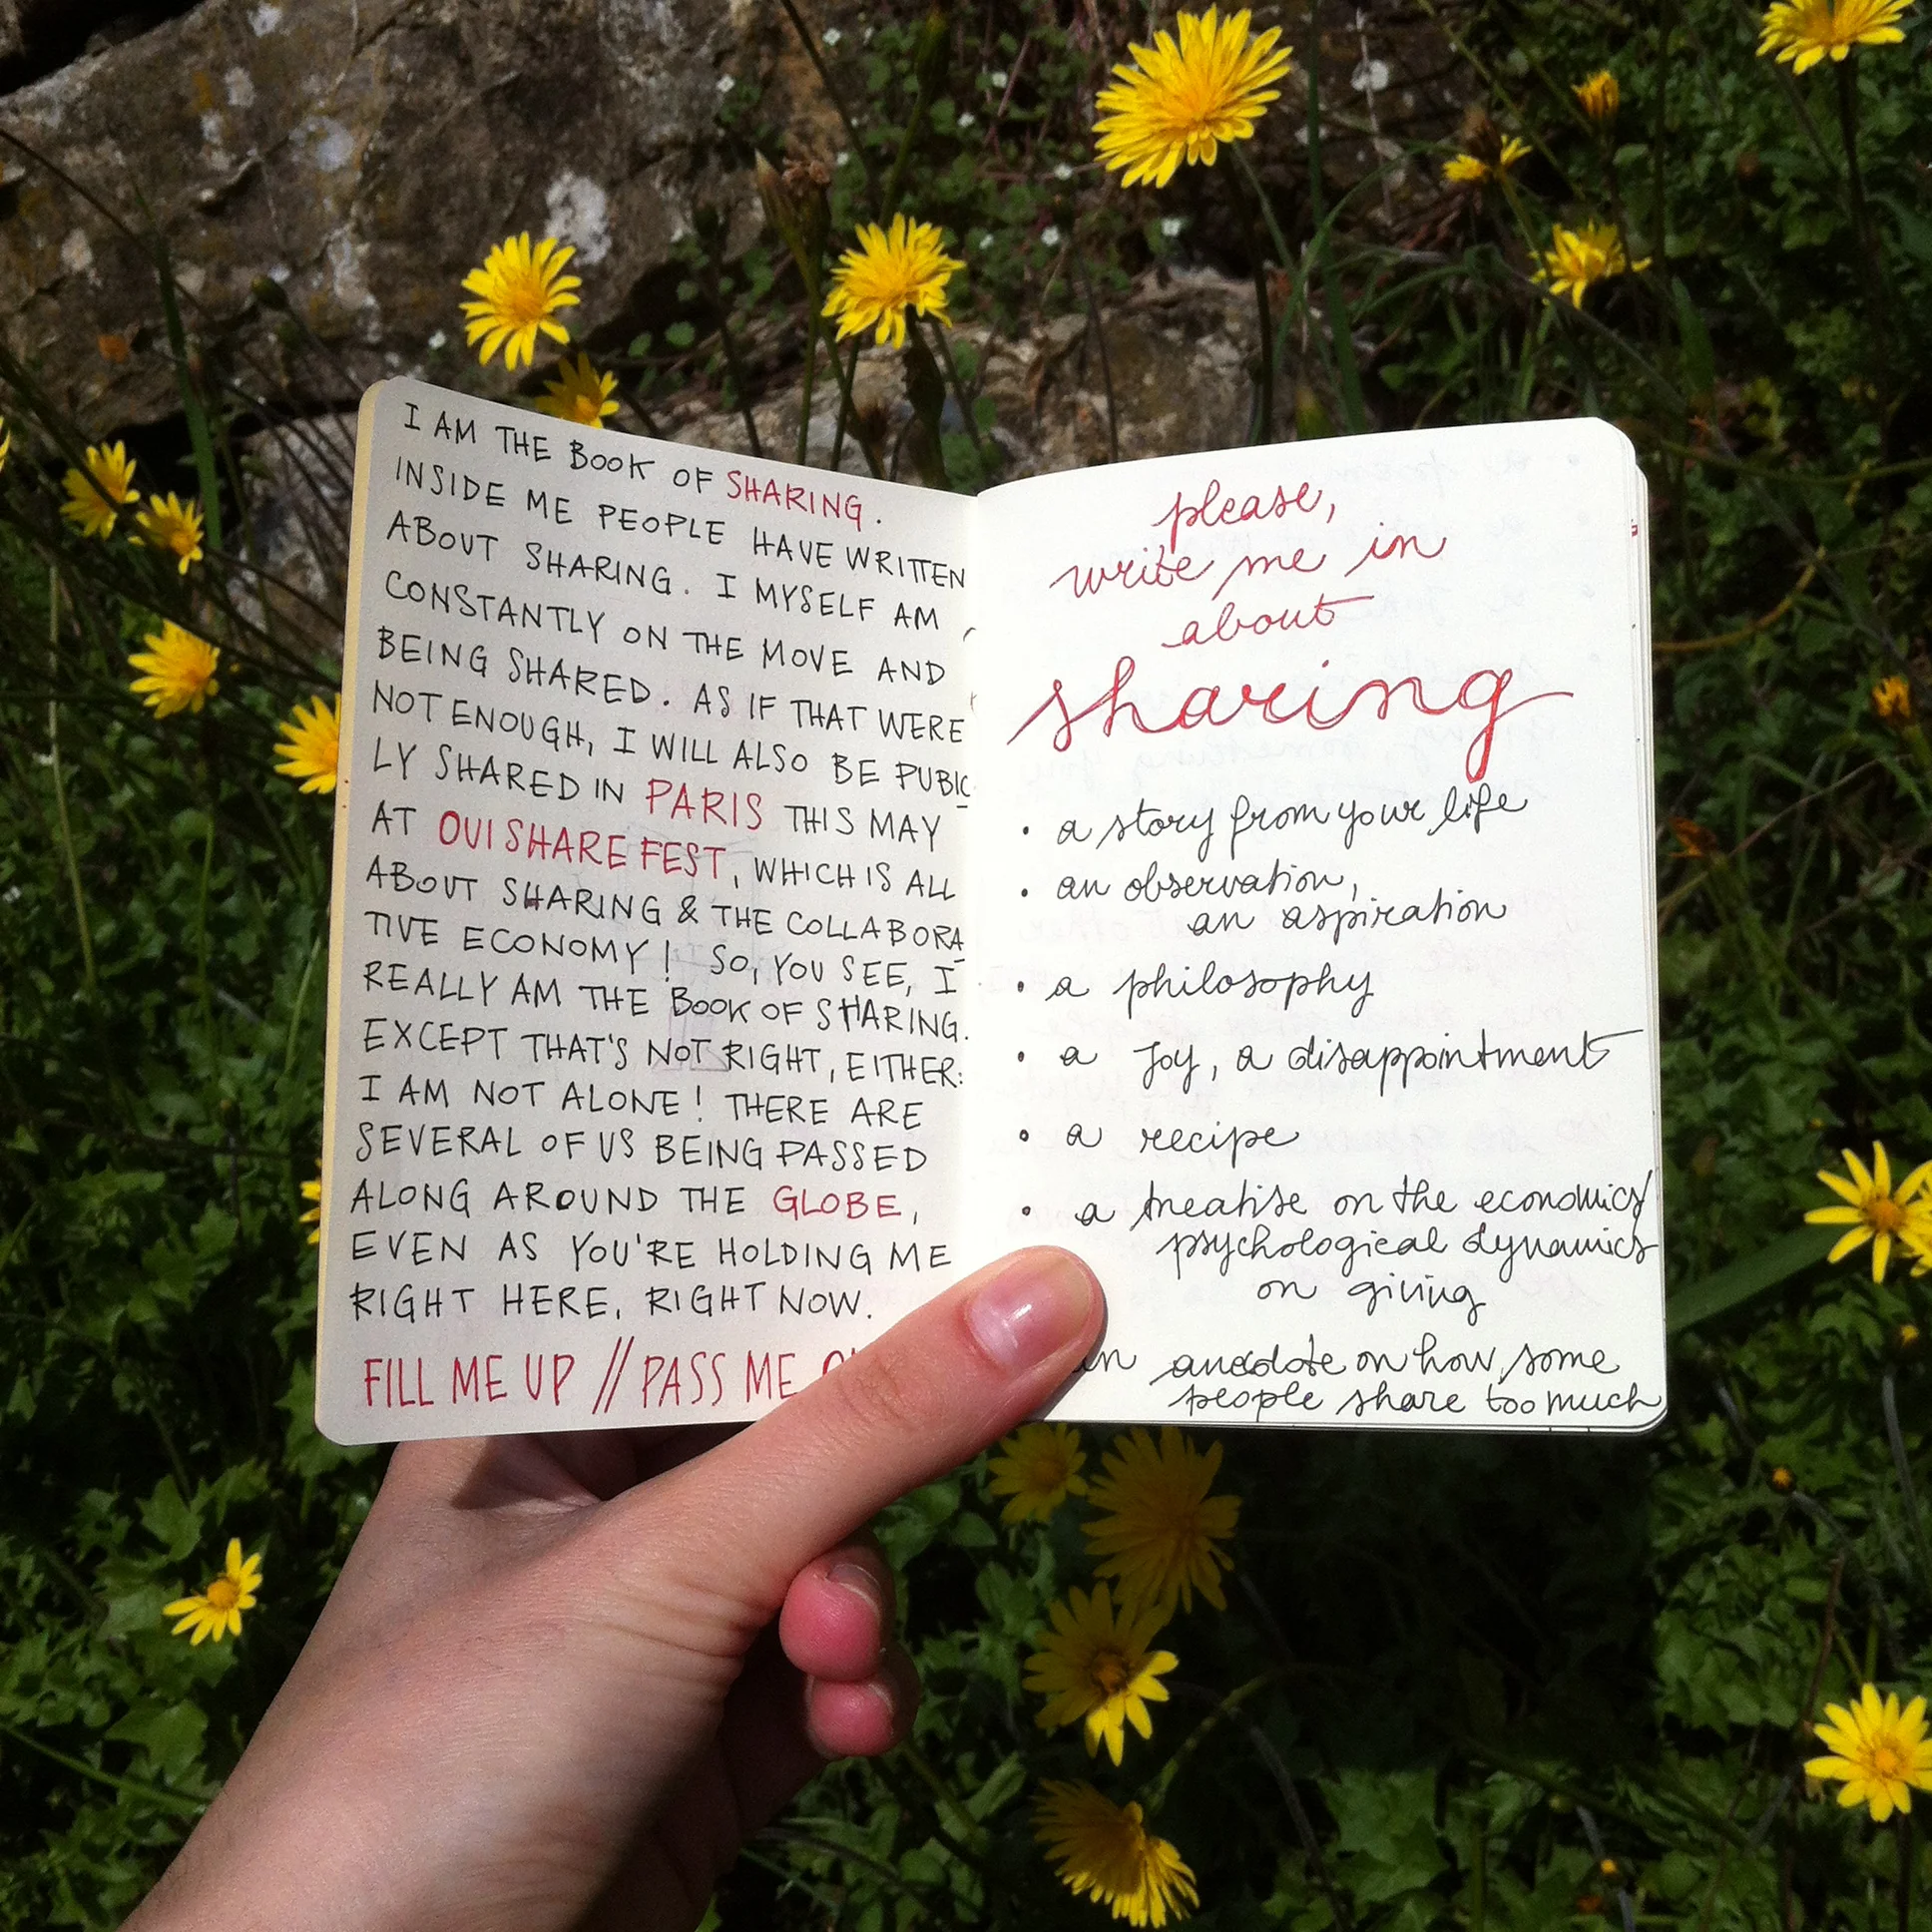 I AM THE BOOK OF SHARING.
INSIDE ME PEOPLE HAVE WRITTEN
ABOUT SHARING. I MYSELF AM
CONSTANTLY ON THE MOVE AND
BEING SHARED. AS IF THAT WERE
NOT ENOUGH, I WILL ALSO BE PUBIC
LY SHARED IN PARIS THIS MAY
AT OUISHARE FEST, WHICH IS ALL
ABOUT SHARING & THE COLLABORA
TIVE ECONOMY! SO, YOU SEE, I
REALLY AM THE BOOK OF SHARING.
EXCEPT THAT'S NOT RIGHT, EITHER:
I AM NOT ALONE! THERE ARE
SEVERAL OF US BEING PASSED
ALONG AROUND THE GLOBE,
EVEN AS YOU'RE HOLDING ME
RIGHT HERE, RIGHT NOW.
FILL ME UP // PASS ME
please,
write me in
about
sharing
• a story from your life
• an observation,
an aspiration
• a philosophy
• a joy, a disappointment
• a recipe
• a treatise on the economics/
psychological dynamics
on giving
an anecdote on how some
people share too much